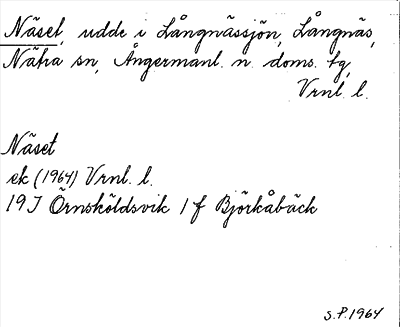 Näset, udde i Långnässjön, Långnäs,
Nätra sn, Ångermanl. n. doms. tg,
Vrnl. l.
Näset
ek (1964) Vrnl. l.
19J Örnsköldsvik 1 f Björkåbäck
S.P. 1964